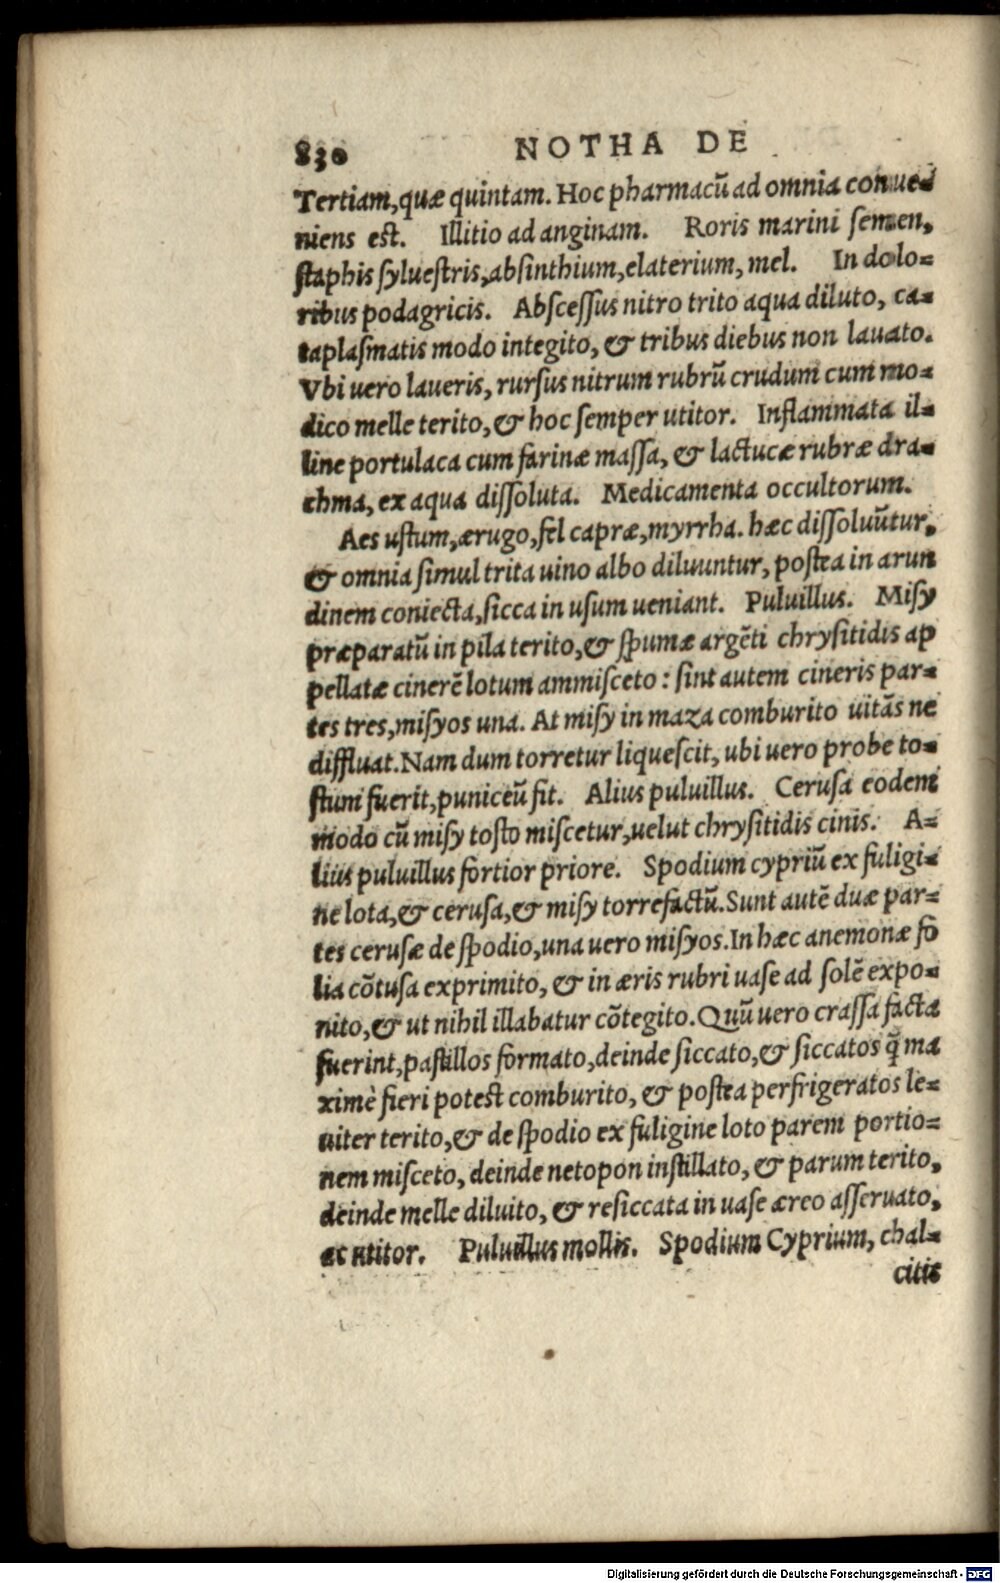 830 NOTHA DE
Tertiam, quæ quintam. Hoc pharmacū ad omnia conue-
niens est. Illitio ad anginam. Roris marini semen,
staphis syluestris, absinthium, elaterium, mel. In dolo-
ribus podagricis. Abscessus nitro trito aqua diluto, ca-
taplasmatis modo integito, & tribus diebus non lauato.
Vbi uero laueris, rursus nitrum rubrū crudum cum mo-
dico melle terito, & hoc semper utitor. Inflammata il-
line portulaca cum farinæ massa, & lactucæ rubræ dra-
chma, ex aqua dissoluta. Medicamenta occultorum.
Aes ustum, ærugo, fel capræ, myrrha. hæc dissoluūtur,
& omnia simul trita uino albo diluuntur, postea in arun
dinem coniecta, sicca in usum ueniant. Puluillus. Misy
præparatū in pila terito, & spumæ argēti chrysitidis ap
pellatæ cinerē lotum ammisceto: sint autem cineris par-
tes tres, misyos una. At misy in maza comburito uitās ne
diffluat. Nam dum torretur liquescit, ubi uero probe to-
stum fuerit, puniceū fit. Alius puluillus. Cerusa eodem
modo cū misy tosto miscetur, uelut chrysitidis cinis. A-
lius puluillus fortior priore. Spodium cypriū ex fuligi-
ne lota, & cerusa, & misy torrefactū. Sunt autē duæ par-
tes cerusæ de spodio, una uero misyos. In hæc anemonæ fo
lia cōtusa exprimito, & in æris rubri uase ad solē expo-
nito, & ut nihil illabatur cōtegito. Quū uero crassa facta
fuerint, pastillos formato, deinde siccato, & siccatos q̄ ma
ximè fieri potest comburito, & postea perfrigeratos le-
uiter terito, & de spodio ex fuligine loto parem portio-
nem misceto, deinde netopon instillato, & parum terito,
deinde melle diluito, & resiccata in uase æreo asseruato,
ac utitor. Puluillus mollis. Spodium Cyprium, chal-
citis
Digitalisierung gefördert durch die Deutsche Forschungsgemeinschaft - DFG